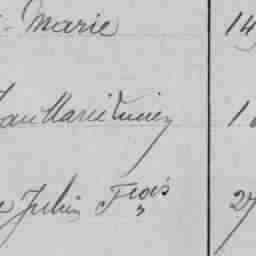 Marie 14
Jean Marie Lucien 1
Julien Fçois 27